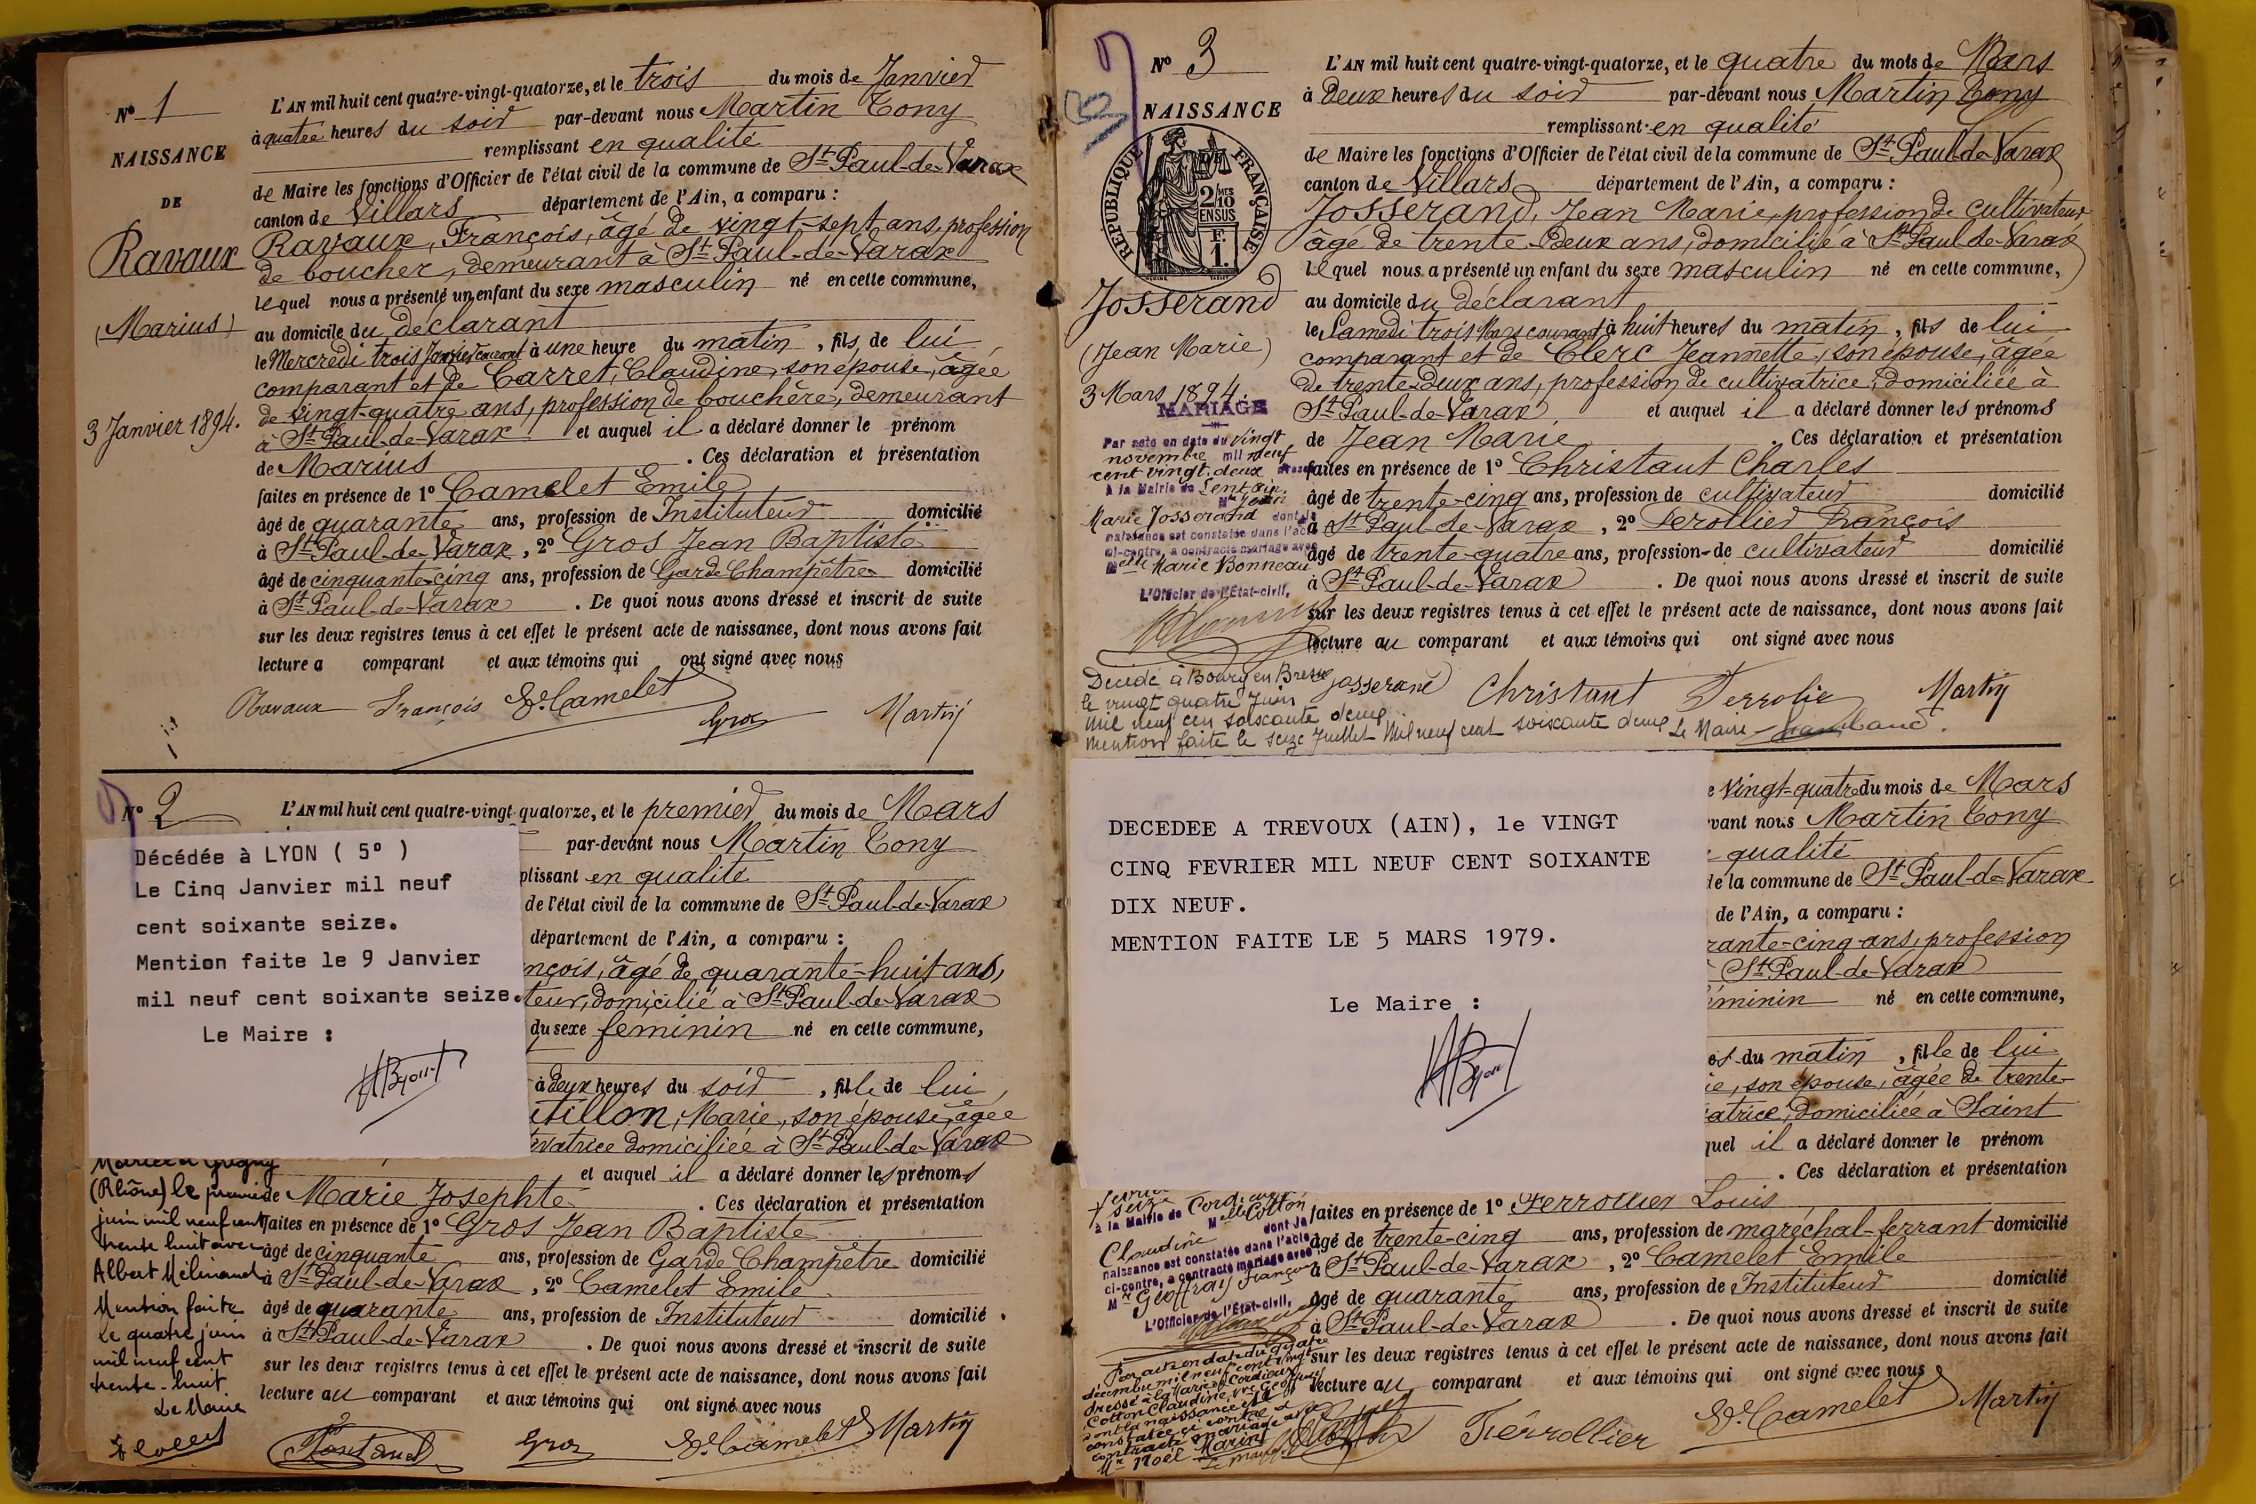 N° 1
NAISSANCE
DE
Ravaux
(Marius)
3 Janvier 1894.
L'AN mil huit cent quatre-vingt-quatorze, et le trois du mois de Janvier
à quatre heures du soir par-devant nous Martin Tony
remplissant en qualité
de Maire les fonctions d'Officier de l'état civil de la commune de St Paul-de-Varax
canton de Villars département de l'Ain, a comparu :
Ravaux, François, âgé de vingt-sept ans, profession
de boucher, demeurant à St Paul-de-Varax
lequel nous a présenté un enfant du sexe masculin né en cette commune,
au domicile du déclarant
le Mercredi trois Janvier courant à une heure du matin, fils de lui
comparant et de Carret, Claudine, son épouse, âgée
de vingt-quatre ans, profession de bouchère, demeurant
à St Paul-de-Varax et auquel il a déclaré donner le prénom
de Marius . Ces déclaration et présentation
faites en présence de 1° Camelet Emile
âgé de quarante ans, profession de Instituteur domicilié
à St Paul-de-Varax, 2° Gros Jean Baptiste
âgé de cinquante-cinq ans, profession de Garde Champêtre domicilié
à St Paul-de-Varax . De quoi nous avons dressé et inscrit de suite
sur les deux registres tenus à cet effet le présent acte de naissance, dont nous avons fait
lecture a comparant et aux témoins qui ont signé avec nous
Ravaux François E. Camelet
Gros Martin
N° 2
L'AN mil huit cent quatre-vingt-quatorze, et le premier du mois de Mars
par-devant nous Martin Tony
plissant en qualité
de l'état civil de la commune de St Paul-de-Varax
département de l'Ain, a comparu :
nçois, âgé de quarante-huit ans,
teur, domicilié à St Paul-de-Varax
du sexe feminin né en cette commune,
à deux heures du soir, fille de lui
tillon, Marie, son épouse, âgée
vatrice domiciliée à St Paul-de-Varax
et auquel il a déclaré donner les prénoms
de Marie Josephte . Ces déclaration et présentation
faites en présence de 1° Gros Jean Baptiste
âgé de cinquante ans, profession de Garde Champêtre domicilié
à St Paul-de-Varax, 2° Camelet Emile
âgé de quarante ans, profession de Instituteur domicilié
à St Paul-de-Varax . De quoi nous avons dressé et inscrit de suite
sur les deux registres tenus à cet effet le présent acte de naissance, dont nous avons fait
lecture au comparant et aux témoins qui ont signé avec nous
Gros E. Camelet Martin
Décédée à LYON ( 5° )
Le Cinq Janvier mil neuf
cent soixante seize.
Mention faite le 9 Janvier
mil neuf cent soixante seize.
Le Maire :
(Rhône) le premier
juin mil neuf cent
trente huit avec
Albert Mélinand
Mention faite
Le quatre juin
mil neuf cent
trente-huit
Le Maire
N° 3
NAISSANCE
REPUBLIQUE FRANÇAISE
2/10 MES
EN SUS
1 F.
Josserand
(Jean Marie)
3 Mars 1894.
MARIAGE
Par acte en date du vingt
novembre mil neuf
cent vingt-deux
à la Mairie de Lent Ain
Mr Jean
Marie Josserand dont la
naissance est constatée dans l'acte
ci-contre, a contracté mariage avec
Melle Marie Bonneau
L'Officier de l'État-civil,
L'AN mil huit cent quatre-vingt-quatorze, et le quatre du mois de Mars
à Deux heures du soir par-devant nous Martin Tony
remplissant en qualité
de Maire les fonctions d'Officier de l'état civil de la commune de St Paul-de-Varax
canton de Villars département de l'Ain, a comparu :
Josserand, Jean Marie, profession de cultivateur
âgé de trente-deux ans, domicilié à St Paul-de-Varax
lequel nous a présenté un enfant du sexe masculin né en cette commune,
au domicile du déclarant
le Samedi trois Mars courant à huit heures du matin, fils de lui
comparant et de Clerc Jeannette, son épouse, âgée
de trente-deux ans, profession de cultivatrice, domiciliée à
St Paul-de-Varax et auquel il a déclaré donner les prénoms
de Jean Marie . Ces déclaration et présentation
faites en présence de 1° Christaut Charles
âgé de trente-cinq ans, profession de cultivateur domicilié
à St Paul-de-Varax, 2° Ferollier François
âgé de trente-quatre ans, profession de cultivateur domicilié
à St Paul-de-Varax . De quoi nous avons dressé et inscrit de suite
sur les deux registres tenus à cet effet le présent acte de naissance, dont nous avons fait
lecture au comparant et aux témoins qui ont signé avec nous
Josserand Christaut Ferrolie Martin
Décédé à Bourg en Bresse
le vingt quatre Juin
mil neuf cen soixante deux
mention faite le seize Juillet Mil neuf cent soixante deux Le Maire
e Vingt-quatre du mois de Mars
vant nous Martin Tony
qualité
de la commune de St Paul-de-Varax
de l'Ain, a comparu :
rante-cinq ans, profession
St Paul-de-Varax
éminin né en cette commune,
es du matin, fille de lui
ie, son épouse, âgée de trente-
atrice, domiciliée à Saint
quel il a déclaré donner le prénom
. Ces déclaration et présentation
faites en présence de 1° Ferrollier Louis
âgé de trente-cinq ans, profession de maréchal-ferrant domicilié
à St Paul-de-Varax, 2° Camelet Emile
âgé de quarante ans, profession de Instituteur domicilié
à St Paul-de-Varax . De quoi nous avons dressé et inscrit de suite
sur les deux registres tenus à cet effet le présent acte de naissance, dont nous avons fait
lecture au comparant et aux témoins qui ont signé avec nous
Ferrollier E. Camelet Martin
DECEDEE A TREVOUX (AIN), le VINGT
CINQ FEVRIER MIL NEUF CENT SOIXANTE
DIX NEUF.
MENTION FAITE LE 5 MARS 1979.
Le Maire :
seize
à la Mairie de Cordieux
Melle Cotton
Claudine dont la
naissance est constatée dans l'acte
ci-contre, a contracté mariage avec
Mr Geoffray François
L'Officier de l'État-civil,
Par acte en date du quatre
décembre mil neuf cent vingt
dressé à la Mairie de Cordieux
Cotton Claudine vve Geoffray
dont la naissance est
constatée ci-contre a
contracté mariage avec
Mr Noël Marin
Le maire